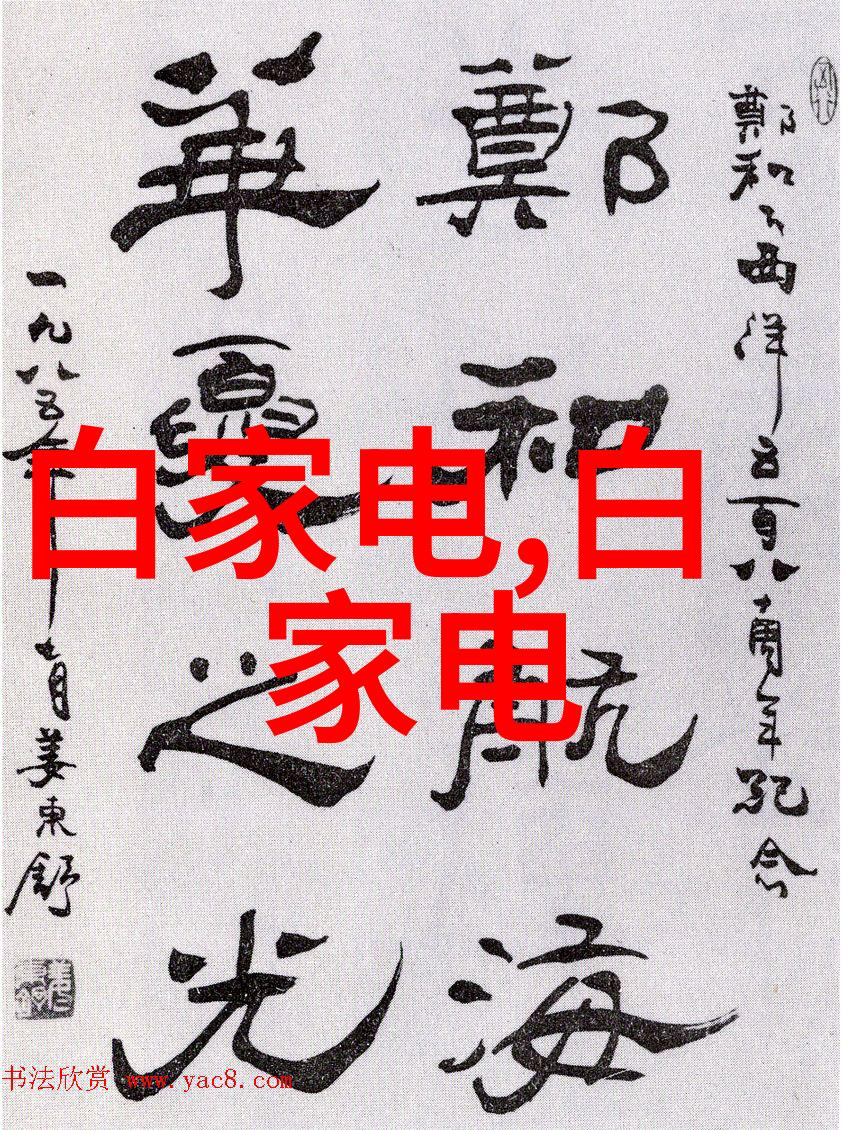 鄭和下西洋五百八十周年紀念
鄭和航海
華夏之光
一九八五年十一月姜東舒
白家电,白
家电
书法欣赏 www.yac8.com